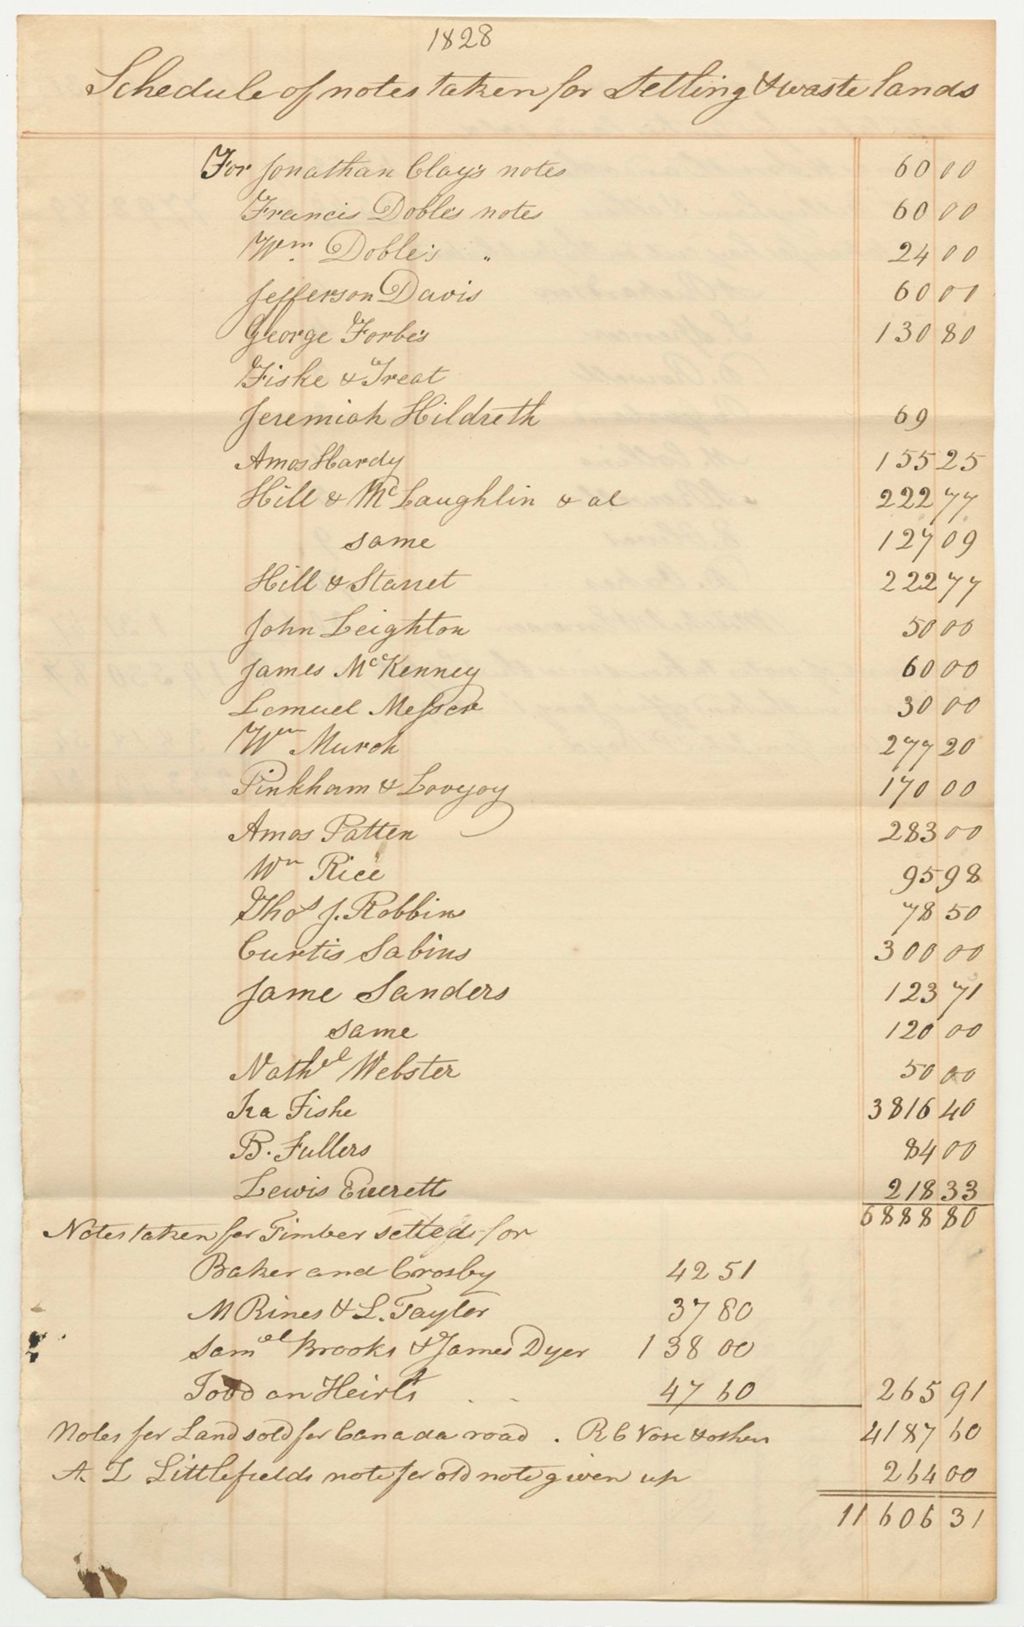 1828
Schedule of notes taken for Settling & waste lands
For Jonathan Clay's notes 60 00
Francis Doble's notes 60 00
Wm. Doble's " 24 00
Jefferson Davis 60 00
George Forbe's 130 80
Fiske & Treat
Jeremiah Hildreth 69
Amos Hardy 155 25
Hill & McLaughlin & al 222 77
same 127 09
Hill & Starret 222 77
John Leighton 50 00
James McKenney 60 00
Lemuel Messer 30 00
Wm Murch 277 20
Pinkham & Lovejoy 170 00
Amos Patten 283 00
Wm Rice 95 98
Thos J. Robbins 78 50
Curtis Sabins 300 00
Jame Sanders 123 71
same 120 00
Nathel Webster 50 00
Ira Fiske 3816 40
B. Fullers 84 00
Lewis Everett 218 33
6888 80
Notes taken for Timber setteds for
Baker and Crosby 42 51
M Rines & L. Taylor 37 80
Samel Brooks & James Dyer 138 00
Todd an Heirs 47 60 265 91
Notes for Land sold for Canada road . R C Vose & others 4187 60
A. L Littlefields note for old note given up 264 00
11606 31